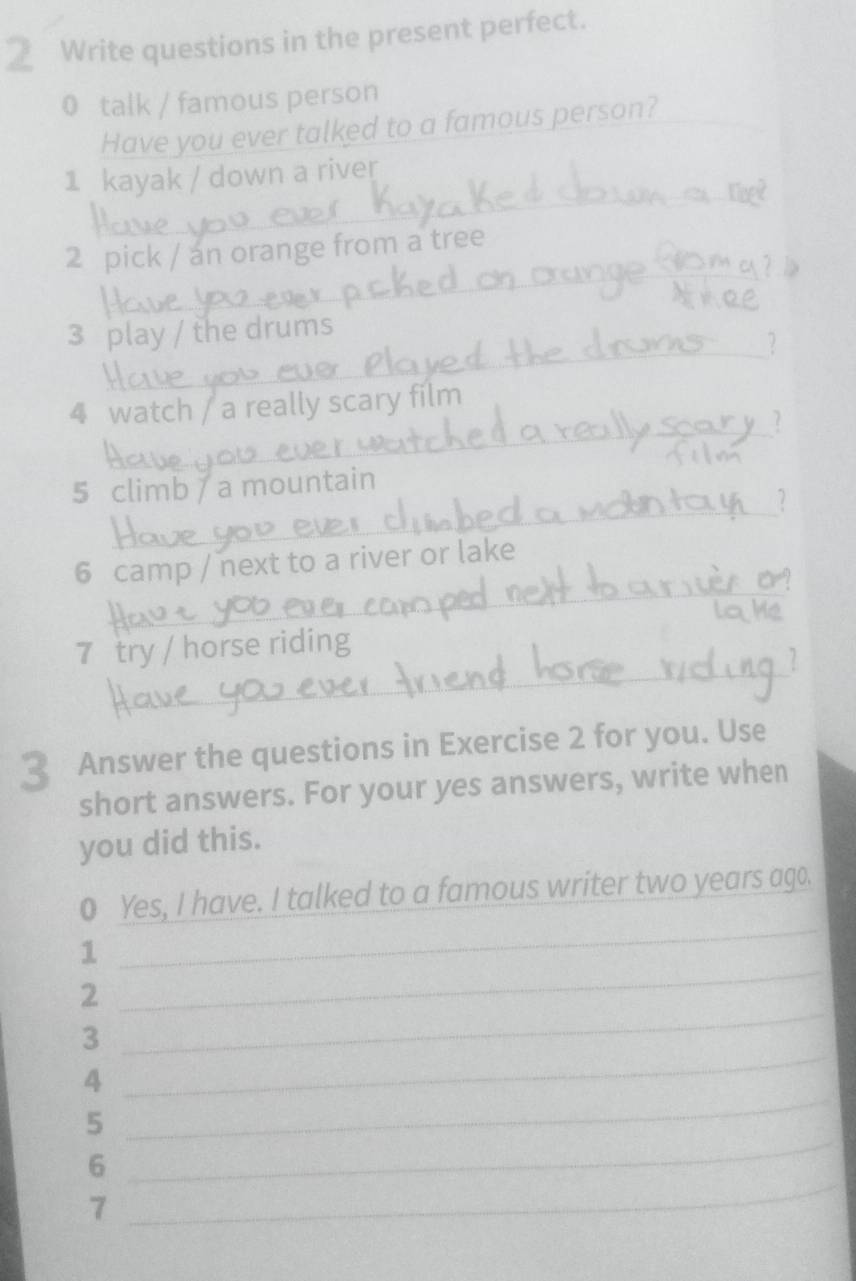 2 Write questions in the present perfect.
0 talk / famous person
Have you ever talked to a famous person?
1 kayak / down a river
Have you ever kayaked down a
2 pick / an orange from a tree
Have you ever pcked an orange from a?
thee
3 play / the drums
Have you ever played the drums ?
4 watch / a really scary film
Have you ever watched a really scary ?
film
5 climb / a mountain
Have you ever climbed a ?
6 camp / next to a river or lake
Have you ever camped next to a river or?
lake
7 try / horse riding
Have you ever friend horse riding ?
3 Answer the questions in Exercise 2 for you. Use
short answers. For your yes answers, write when
you did this.
0 Yes, I have. I talked to a famous writer two years ago.
1
2
3
4
5
6
7